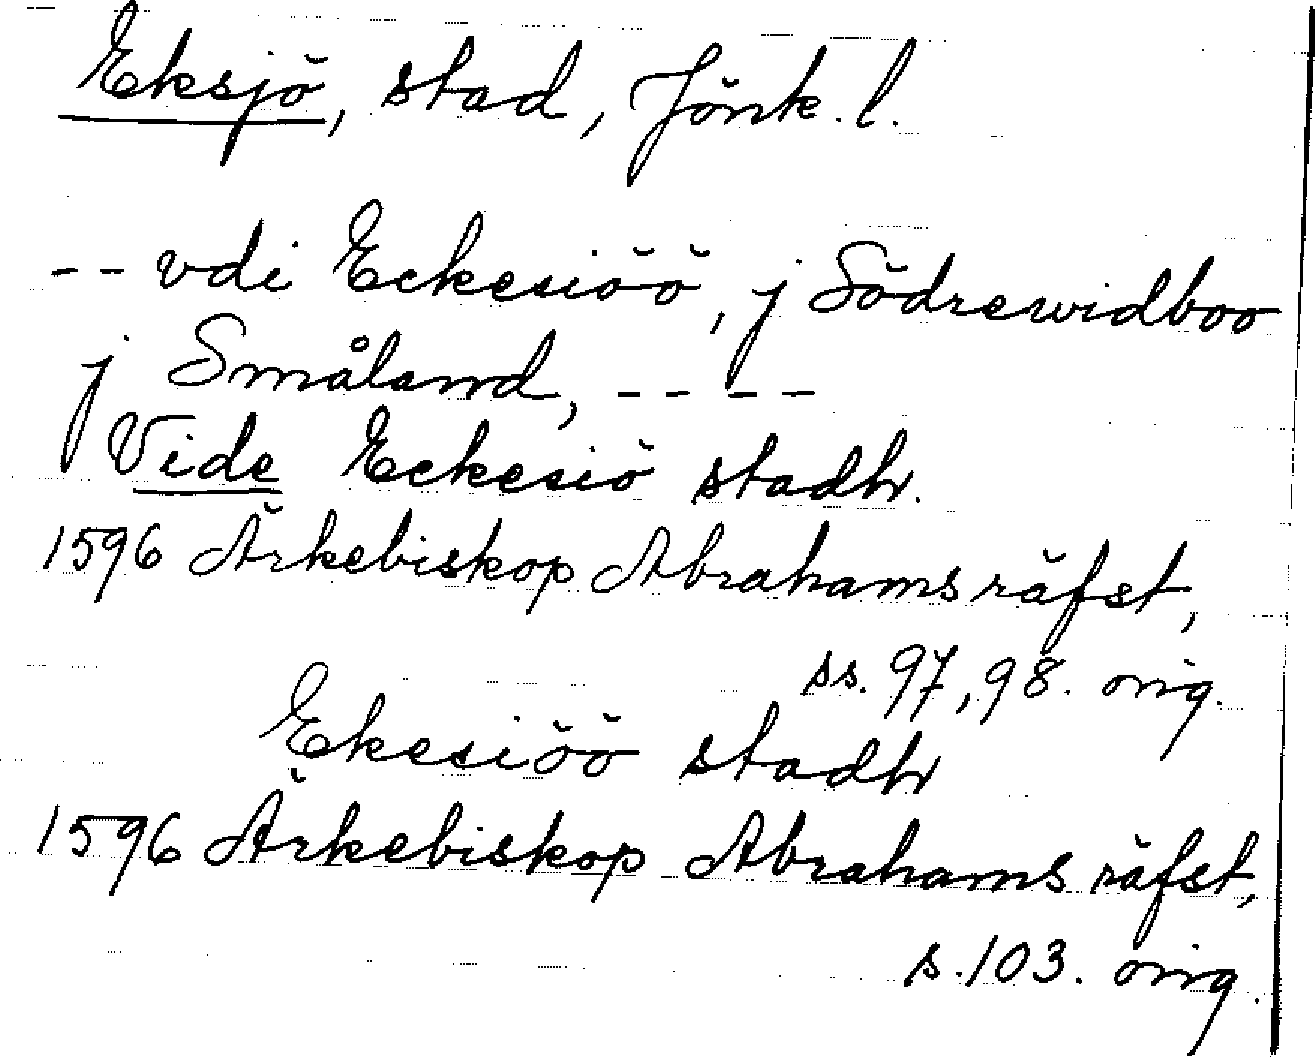 Eksjö, stad, Jönk. l.
-- vdi Eckesiöö, j Södrewidboo
j Småland, -- --
Vide Eckesiö stadh.
1596 Ärkebiskop Abrahams räfst,
ss. 97, 98. orig.
Ekesiöö stadh
1596 Ärkebiskop Abrahams räfst,
s. 103. orig.